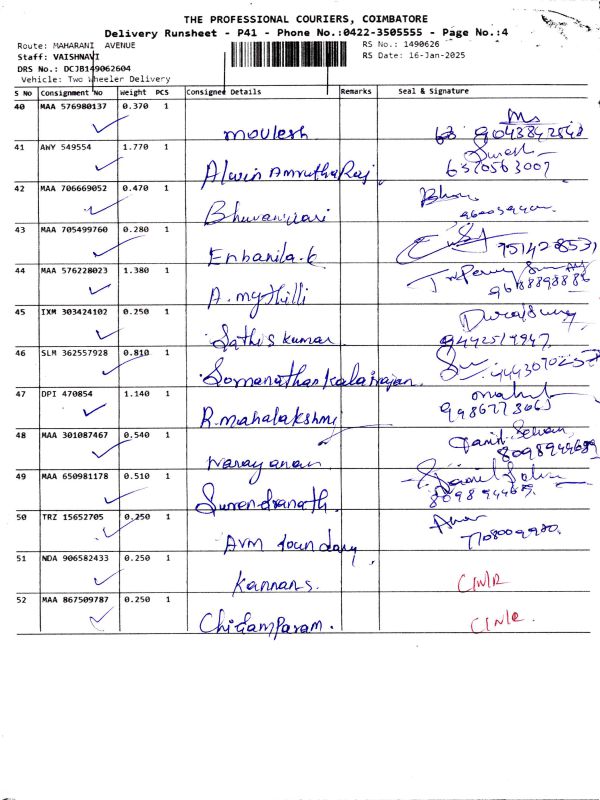 THE PROFESSIONAL COURIERS, COIMBATORE
Delivery Runsheet - P41 - Phone No.:0422-3505555 - Page No.:4
Route: MAHARANI AVENUE
RS No.: 1490626
Staff: VAISHNAVI
RS Date: 16-Jan-2025
DRS No.: DCJB149062604
Vehicle: Two Wheeler Delivery
S No Consignment No Weight PCS Consignee Details Remarks Seal & Signature
40 MAA 576980137 0.370 1
Moulesh 9043842548
41 AWY 549554 1.770 1
Alwin Amrutha Raj 6370563007
42 MAA 706669052 0.470 1
Bhuvaneswari
43 MAA 705499760 0.280 1
Enbanila.k 9514288531
44 MAA 576228023 1.380 1
A. mythilli
45 IXM 303424102 0.250 1
Sathis kumar
46 SLM 362557928 0.810 1
Somanathan kalairajan.
47 DPI 470854 1.140 1
R. mahalakshmi
48 MAA 301087467 0.540 1
Narayanan 8098944689
49 MAA 650981178 0.510 1
Surendranath.
50 TRZ 15652705 0.250 1
Avm foundary
51 NDA 906582433 0.250 1
Kannan s. C/N/R
52 MAA 867509787 0.250 1
Chidamparam. C/N/R.